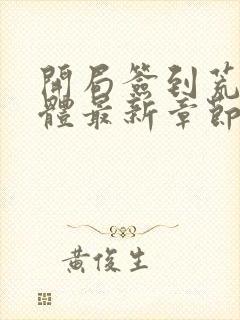 開局簽到荒
體最新章節
黃俊生